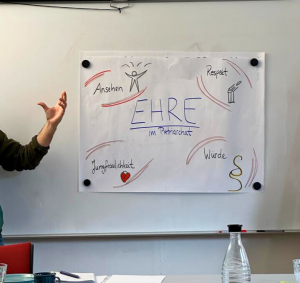 Ansehen
Respekt
EHRE
im Patriarchat
Jungfräulichkeit
Würde
§